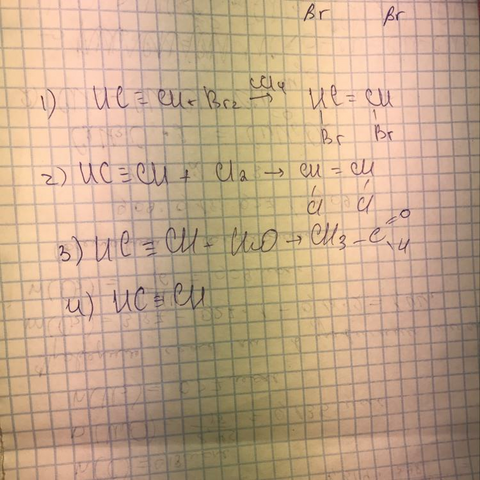 Br Br
1) HC ≡ CH + Br2 CCl4 → HC = CH
Br Br
2) HC ≡ CH + Cl2 → CH = CH
Cl Cl
3) HC ≡ CH + H2O → CH3 - C =O
H
4) HC ≡ CH